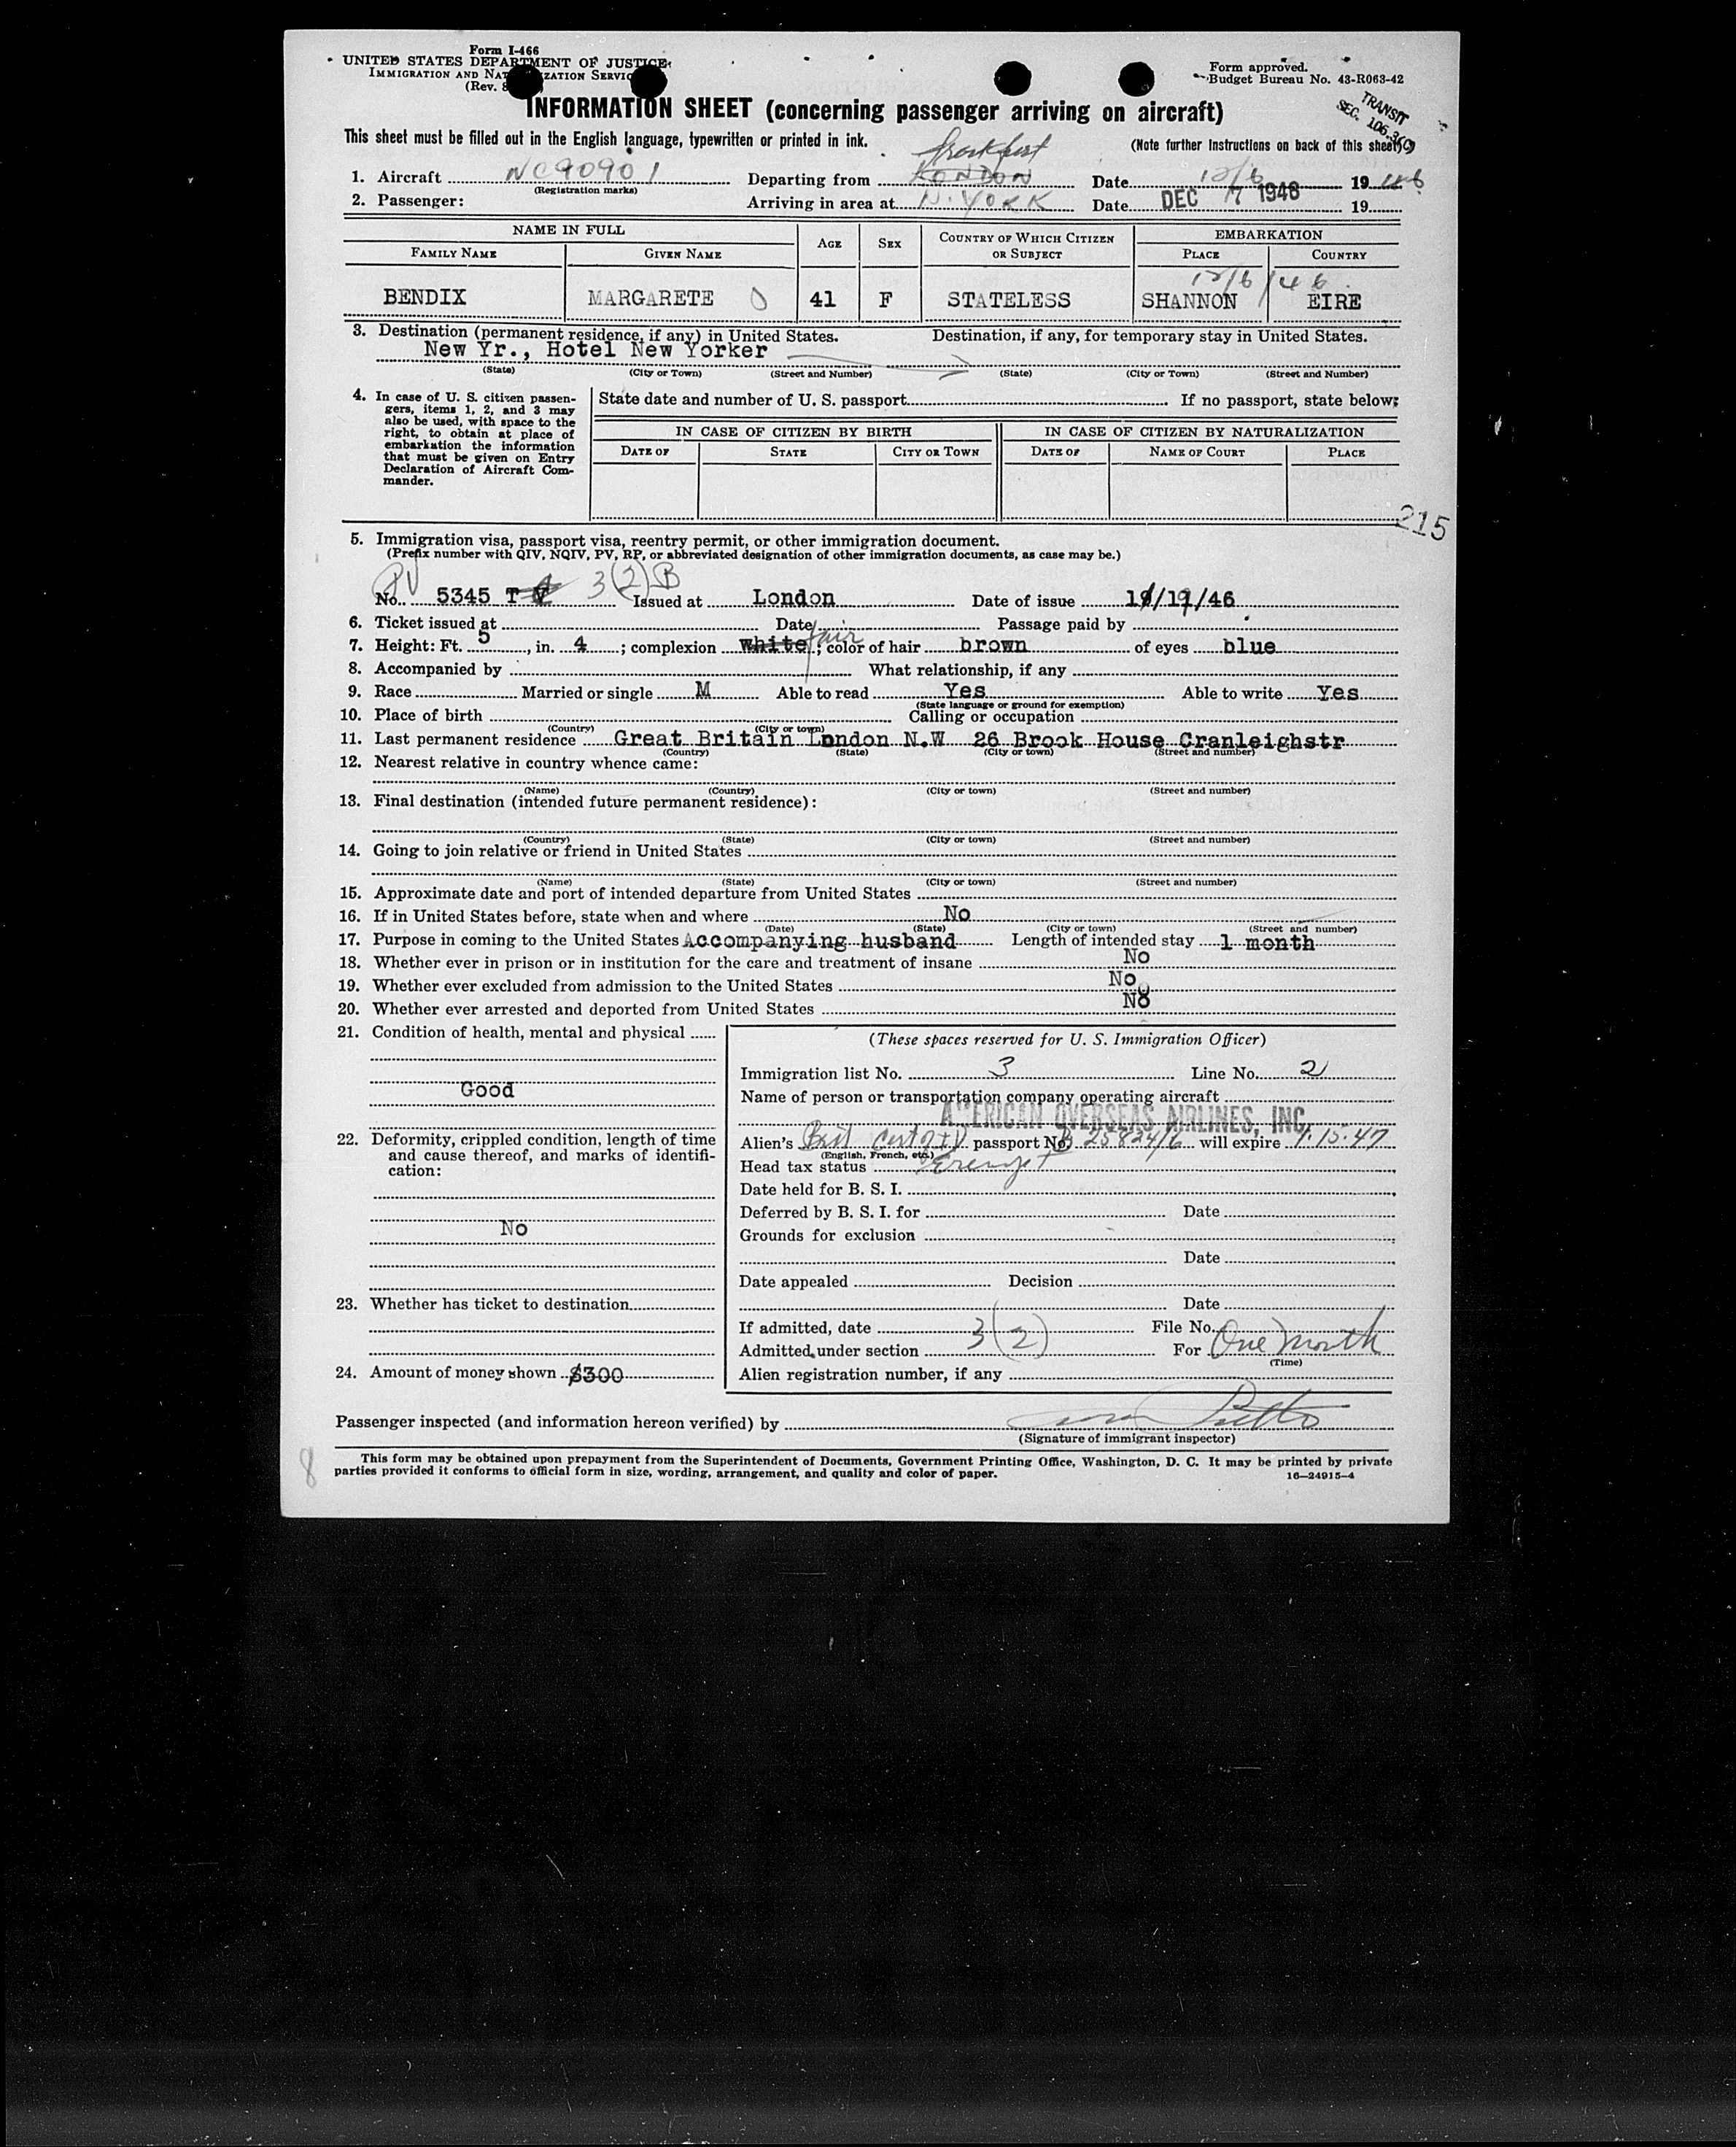 Form I-466
UNITED STATES DEPARTMENT OF JUSTICE
IMMIGRATION AND NATURALIZATION SERVICE
(Rev.
Form approved.
Budget Bureau No. 43-R063-42
TRANSIT
SEC. 106.3(c)
INFORMATION SHEET (concerning passenger arriving on aircraft)
This sheet must be filled out in the English language, typewritten or printed in ink.
(Note further instructions on back of this sheet)
Frankfurt
1. Aircraft NC90901 Departing from LONDON Date 12/6 1946
(Registration marks)
2. Passenger: Arriving in area at N. YORK Date DEC 7 1946 19
NAME IN FULL AGE SEX COUNTRY OF WHICH CITIZEN OR SUBJECT EMBARKATION
FAMILY NAME GIVEN NAME PLACE COUNTRY
12/6/46
BENDIX MARGARETE 41 F STATELESS SHANNON EIRE
3. Destination (permanent residence, if any) in United States. Destination, if any, for temporary stay in United States.
New Yr., Hotel New Yorker
(State) (City or Town) (Street and Number) (State) (City or Town) (Street and Number)
4. In case of U. S. citizen passengers, items 1, 2, and 3 may also be used, with space to the right, to obtain at place of embarkation the information that must be given on Entry Declaration of Aircraft Commander.
State date and number of U. S. passport If no passport, state below:
IN CASE OF CITIZEN BY BIRTH IN CASE OF CITIZEN BY NATURALIZATION
DATE OF STATE CITY OR TOWN DATE OF NAME OF COURT PLACE
215
5. Immigration visa, passport visa, reentry permit, or other immigration document.
(Prefix number with QIV, NQIV, PV, RP, or abbreviated designation of other immigration documents, as case may be.)
PV 3(2)B
No. 5345 T V Issued at London Date of issue 19/11/46
6. Ticket issued at Date Passage paid by
7. Height: Ft. 5, in. 4; complexion white fair; color of hair brown of eyes blue
8. Accompanied by What relationship, if any
9. Race Married or single M Able to read Yes Able to write Yes
(State language or ground for exemption)
10. Place of birth Calling or occupation
(Country) (City or town)
11. Last permanent residence Great Britain London N.W 26 Brook House Cranleighstr
(Country) (State) (City or town) (Street and number)
12. Nearest relative in country whence came:
(Name) (Country) (City or town) (Street and number)
13. Final destination (intended future permanent residence):
(Country) (State) (City or town) (Street and number)
14. Going to join relative or friend in United States
(Name) (State) (City or town) (Street and number)
15. Approximate date and port of intended departure from United States
16. If in United States before, state when and where No
(Date) (State) (City or town) (Street and number)
17. Purpose in coming to the United States Accompanying husband Length of intended stay 1 month
18. Whether ever in prison or in institution for the care and treatment of insane No
19. Whether ever excluded from admission to the United States No
20. Whether ever arrested and deported from United States No
21. Condition of health, mental and physical
Good
22. Deformity, crippled condition, length of time and cause thereof, and marks of identification:
No
23. Whether has ticket to destination
24. Amount of money shown $300
(These spaces reserved for U. S. Immigration Officer)
Immigration list No. 3 Line No. 2
Name of person or transportation company operating aircraft
AMERICAN OVERSEAS AIRLINES, INC.
Alien's Brit Cert of ID passport No. B 25824/6 will expire 1.15.47
(English, French, etc.)
Head tax status Exempt
Date held for B. S. I.
Deferred by B. S. I. for Date
Grounds for exclusion
Date
Date appealed Decision
Date
If admitted, date File No.
Admitted under section 3(2) For One Month
(Time)
Alien registration number, if any
Passenger inspected (and information hereon verified) by
(Signature of immigrant inspector)
8
This form may be obtained upon prepayment from the Superintendent of Documents, Government Printing Office, Washington, D. C. It may be printed by private
parties provided it conforms to official form in size, wording, arrangement, and quality and color of paper. 16—24915-4